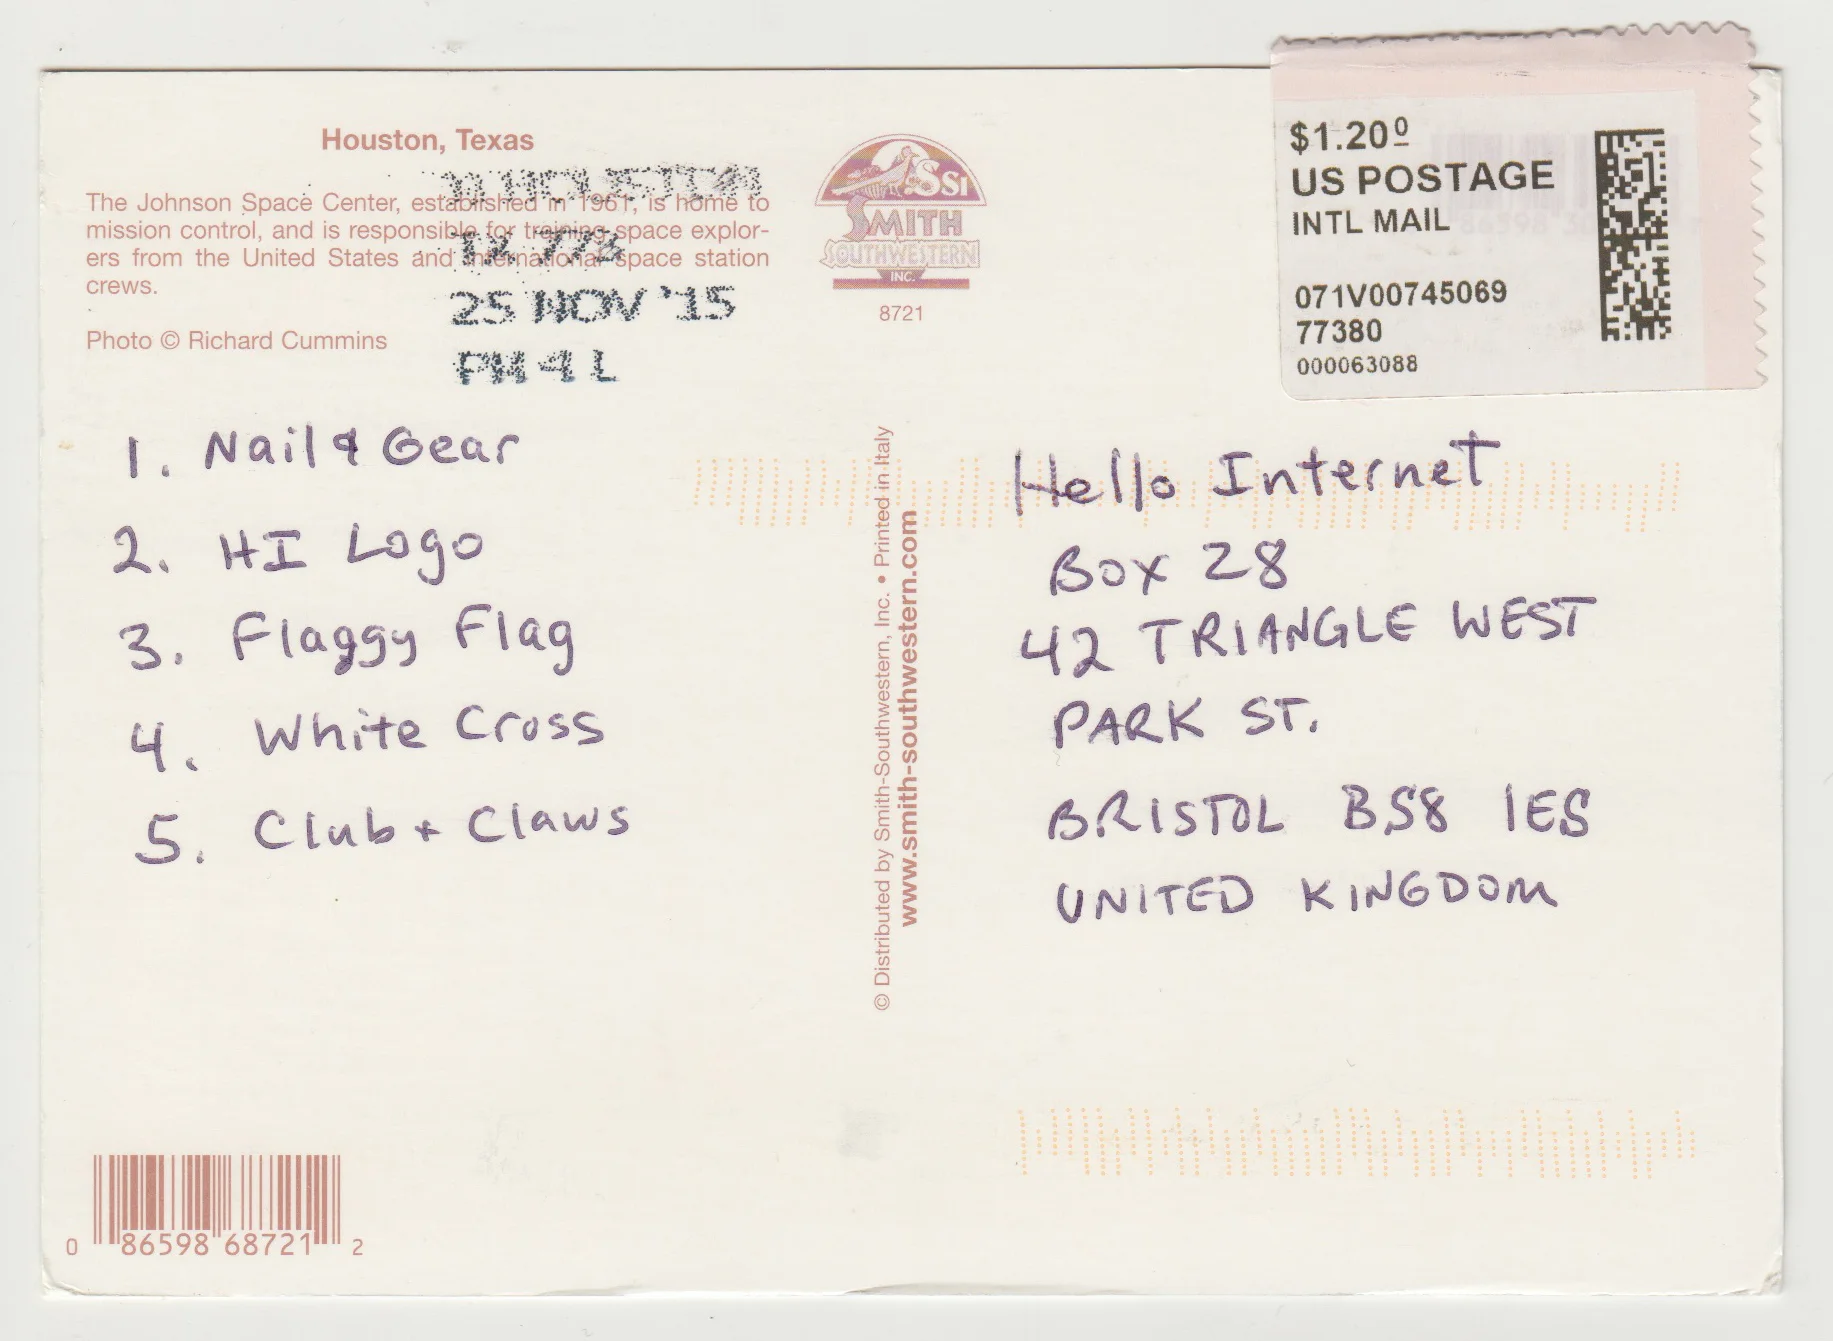 Houston, Texas
The Johnson Space Center, established in 1961, is home to
mission control, and is responsible for training space explor-
ers from the United States and international space station
crews.
Photo © Richard Cummins
N HOUSTON
TX 773
25 NOV '15
PM 4 L
SSI
SMITH
SOUTHWESTERN
INC.
8721
$1.20⁰
US POSTAGE
INTL MAIL
071V00745069
77380
000063088
1. Nail & Gear
2. HI Logo
3. Flaggy Flag
4. White Cross
5. Club + Claws
© Distributed by Smith-Southwestern, Inc. • Printed in Italy
www.smith-southwestern.com
Hello Internet
Box 28
42 TRIANGLE WEST
PARK ST.
BRISTOL BS8 1ES
UNITED KINGDOM
0 86598 68721 2